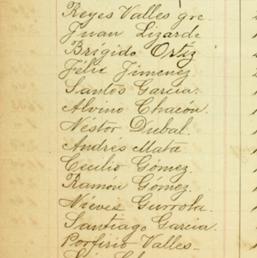 Reyes Valles gre.
Juan Lizarde
Brígido Ortiz
Félix Jimenez
Santos Garcia.
Alvino Chacón.
Néstor
Andrés Mata
Cecilio Gómez.
Ramon Gómez.
Nieves Gurrola.
Santiago Garcia.
Porfirio Valles.